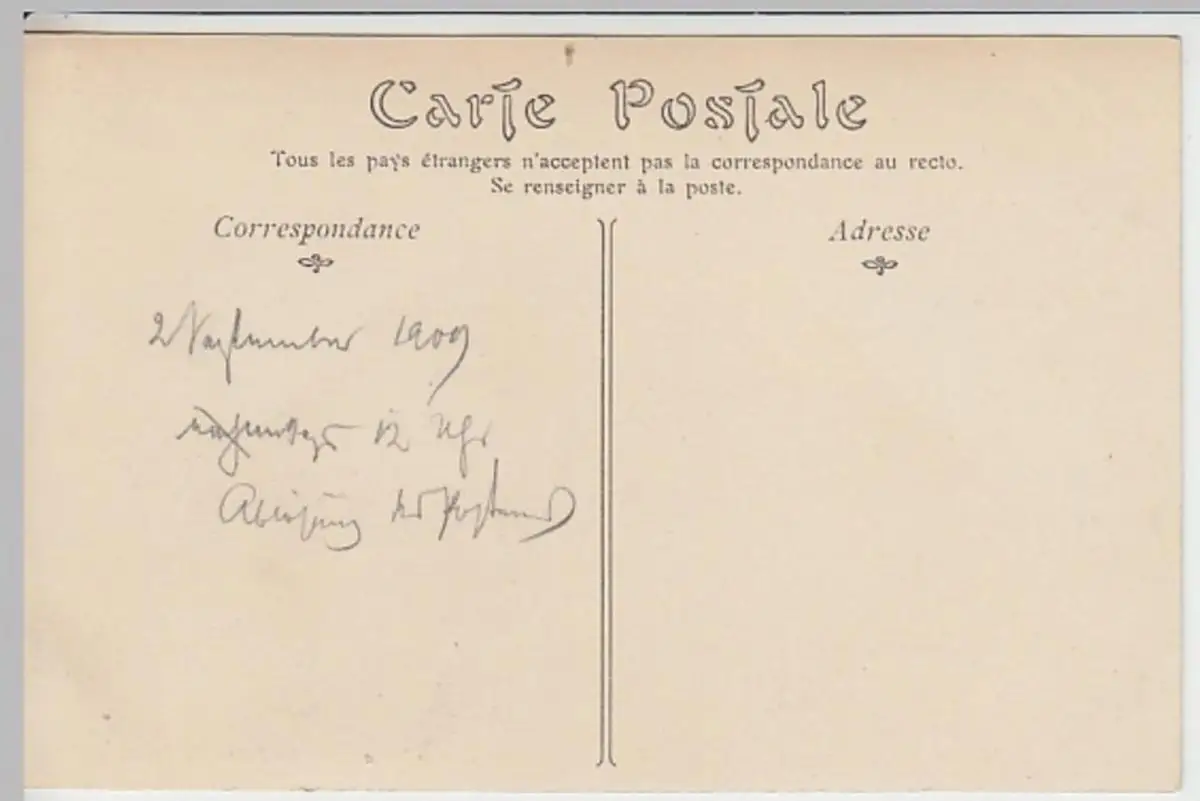 Carte Postale
Tous les pays étrangers n'acceptent pas la correspondance au recto.
Se renseigner à la poste.
Correspondance
Adresse
2 September 1909
12 Uhr
Ablösung der Posten